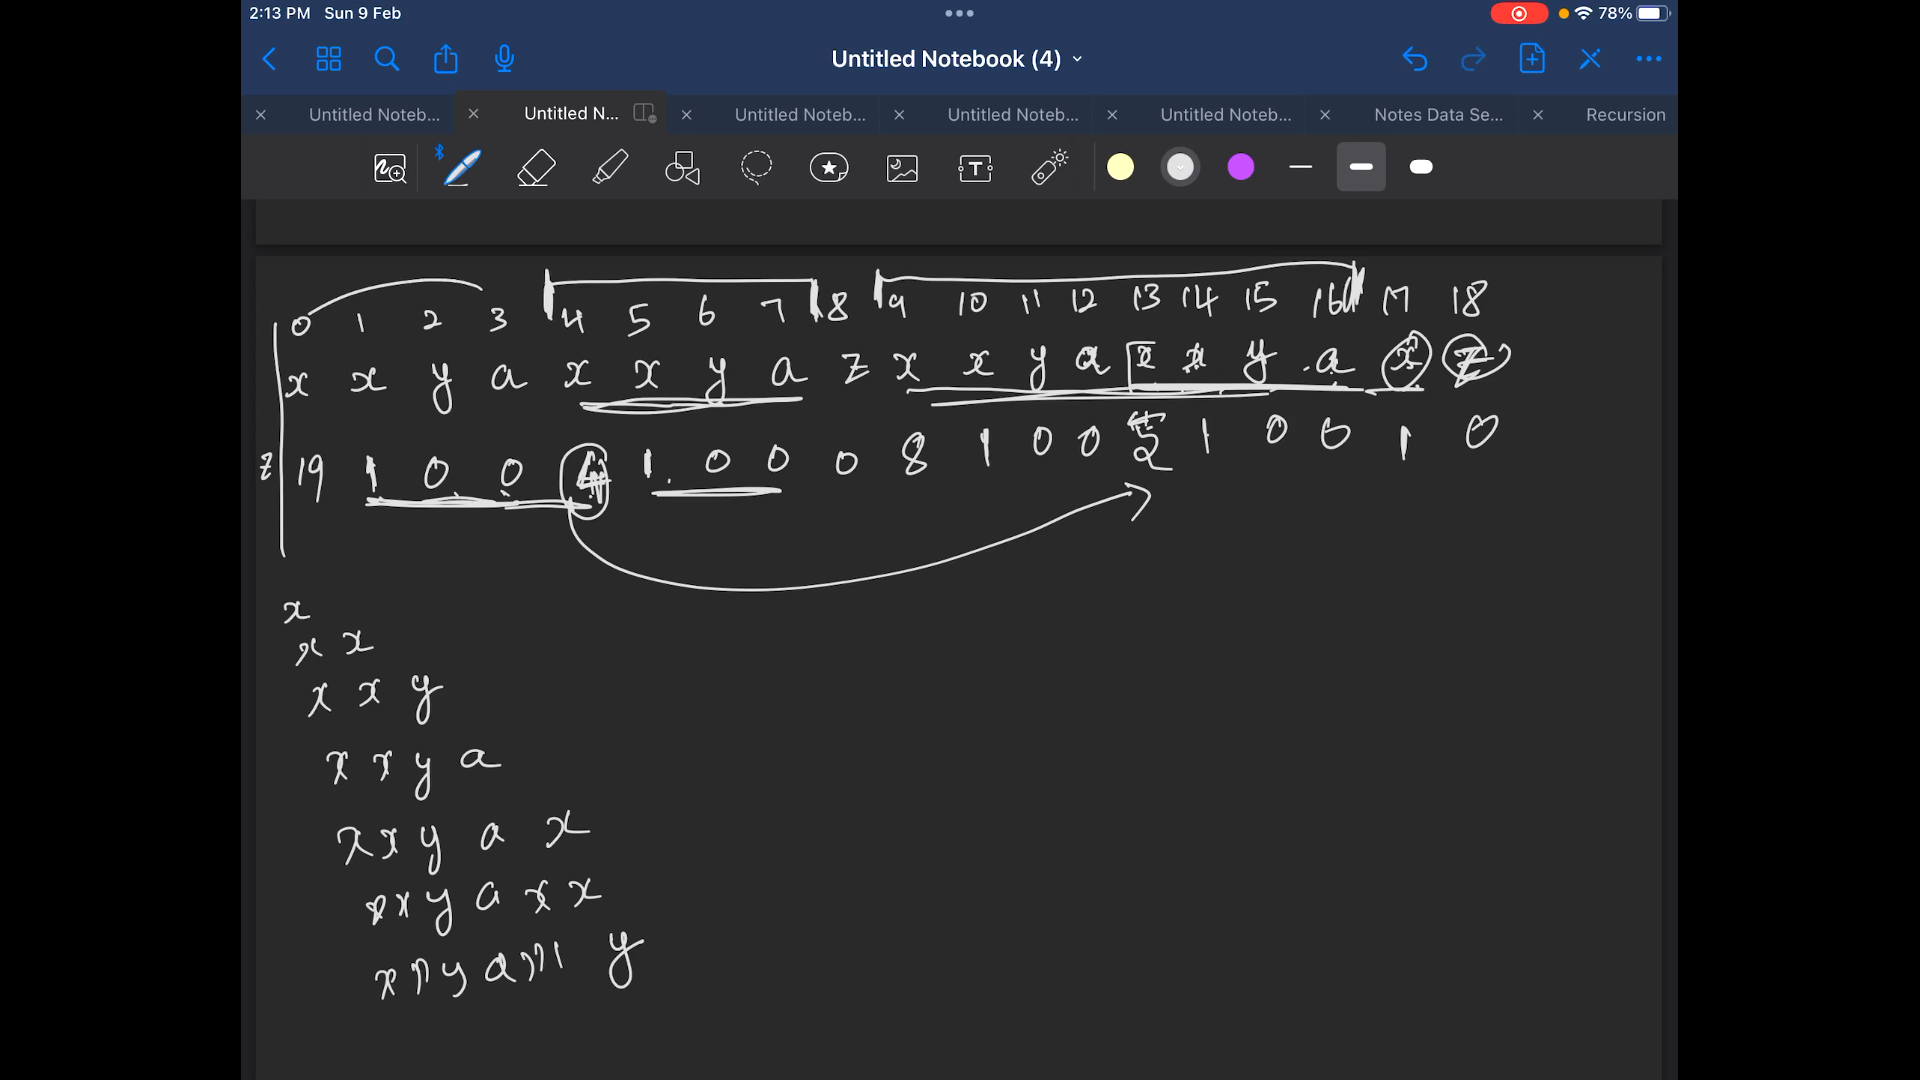 2:13 PM Sun 9 Feb 78%
Untitled Notebook (4)
Untitled Noteb... Untitled N... Untitled Noteb... Untitled Noteb... Untitled Noteb... Notes Data Se... Recursion
0 1 2 3 4 5 6 7 8 9 10 11 12 13 14 15 16 17 18
x x y a x x y a z x x y a x x y a x z
z 19 1 0 0 4 1 0 0 0 8 1 0 0 5 1 0 0 1 0
x
x x
x x y
x x y a
x x y a x
x x y a x x
x x y a x x y